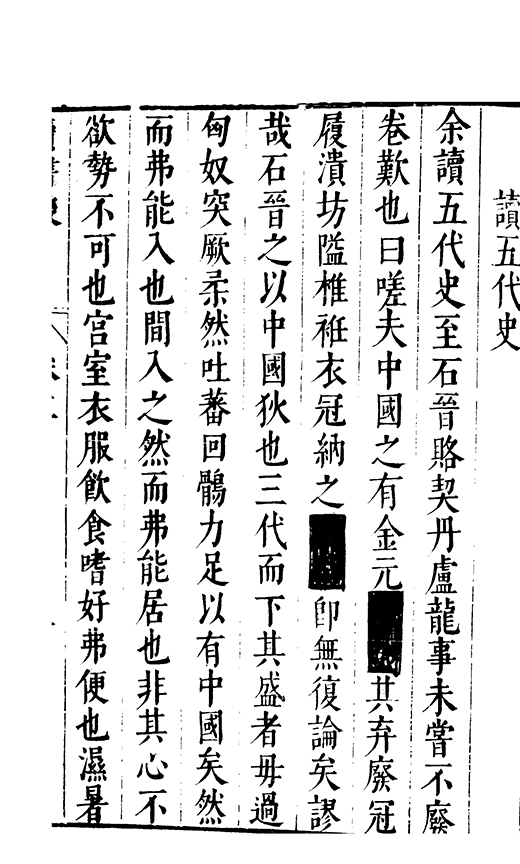 讀五代史
余讀五代史至石晉賂契丹盧龍事未嘗不廢
卷歎也曰嗟夫中國之有金元其弃廢冠
履潰坊隘椎袵衣冠納之卽無復論矣謬
哉石晉之以中國狄也三代而下其盛者毋過
匈奴突厥柔然吐蕃回鶻力足以有中國矣然
而弗能入也間入之然而弗能居也非其心不
欲勢不可也宮室衣服飲食嗜好弗便也濕暑
讀書後